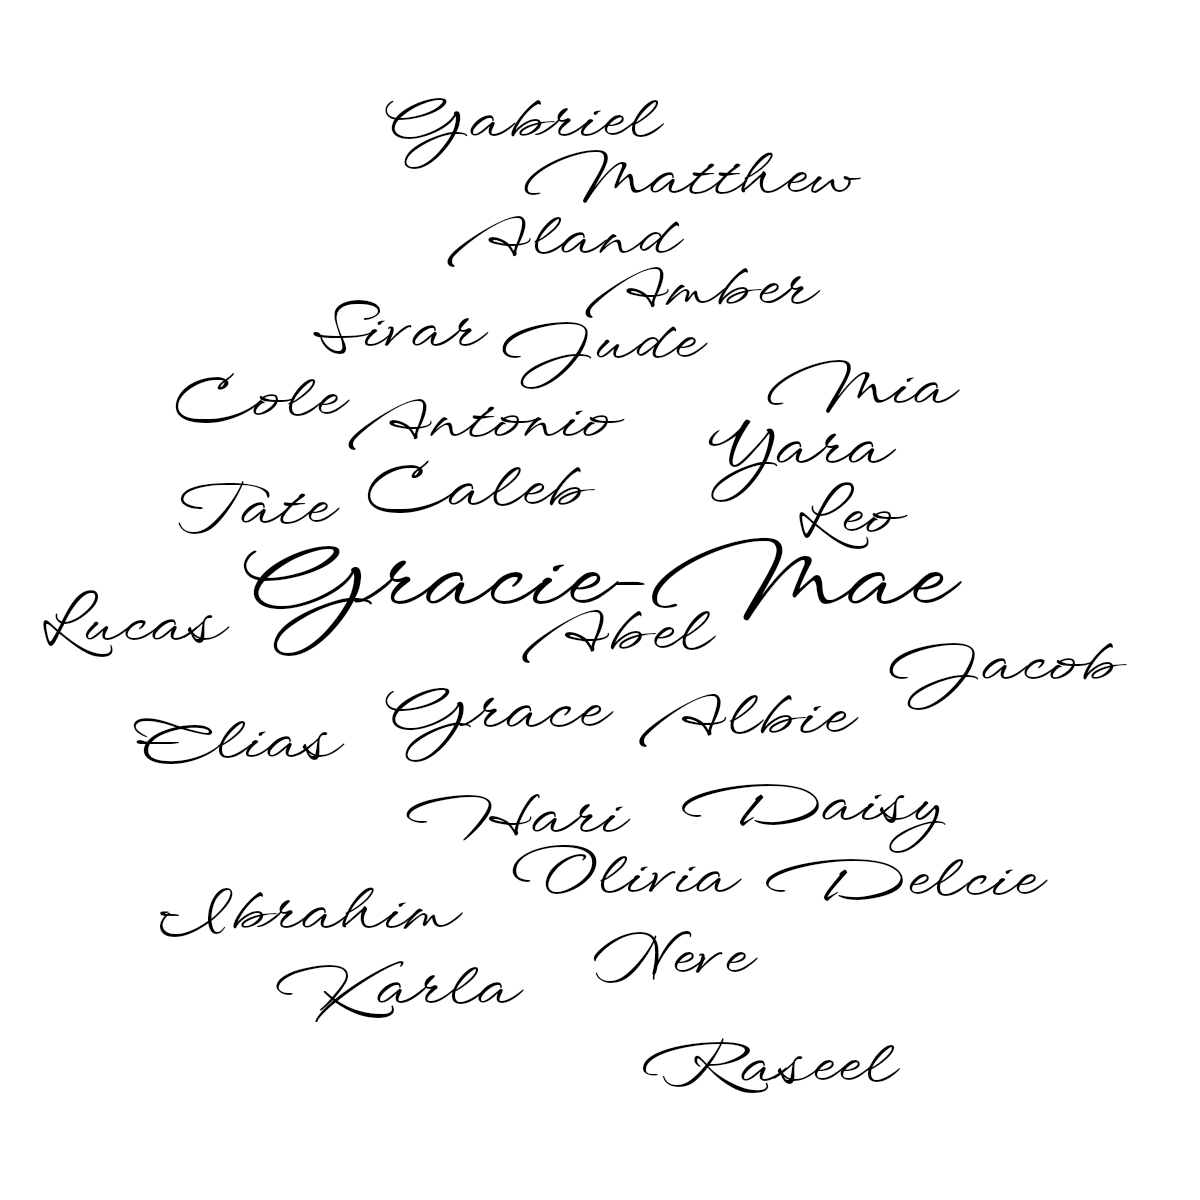 Gabriel
Matthew
Aland
Amber
Sivar Jude
Mia
Cole Antonio
Yara
Tate Caleb
Leo
Gracie-Mae
Lucas Abel
Jacob
Elias Grace Albie
Hari Daisy
Olivia Delcie
Ibrahim
Neve
Karla
Raseel